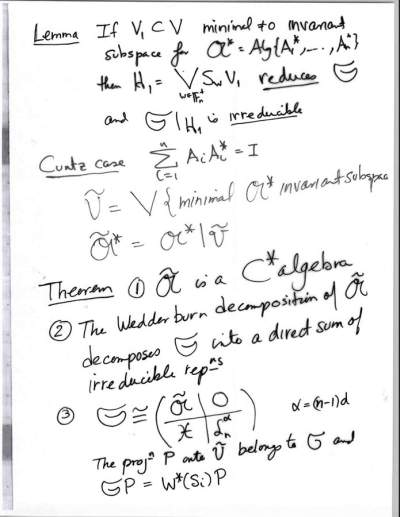 Lemma If V₁ ⊂ V minimal ≠0 invariant
subspace for 𝒜* = Alg{A₁*,…,Aₙ*}
then H₁ = ⋁ S_w V₁ reduces 𝔖
w∈𝔽ₙ⁺
and 𝔖|H₁ is irreducible
Cuntz case ∑ᵢ₌₁ⁿ AᵢAᵢ* = I
Ṽ = V{minimal 𝒜* invariant subspac
𝒜̃* = 𝒜*|Ṽ
Theorem ① 𝒜̃ is a C*algebra
② The Wedderburn decomposition of 𝒜̃
decomposes 𝔖 into a direct sum of
irreducible repⁿs
③ 𝔖 ≅ ( 𝒜̃ | 0 / * | ℒₙ^α ) α=(n-1)d
The projⁿ P onto Ṽ belongs to 𝔖 and
𝔖P = W*(Sᵢ)P